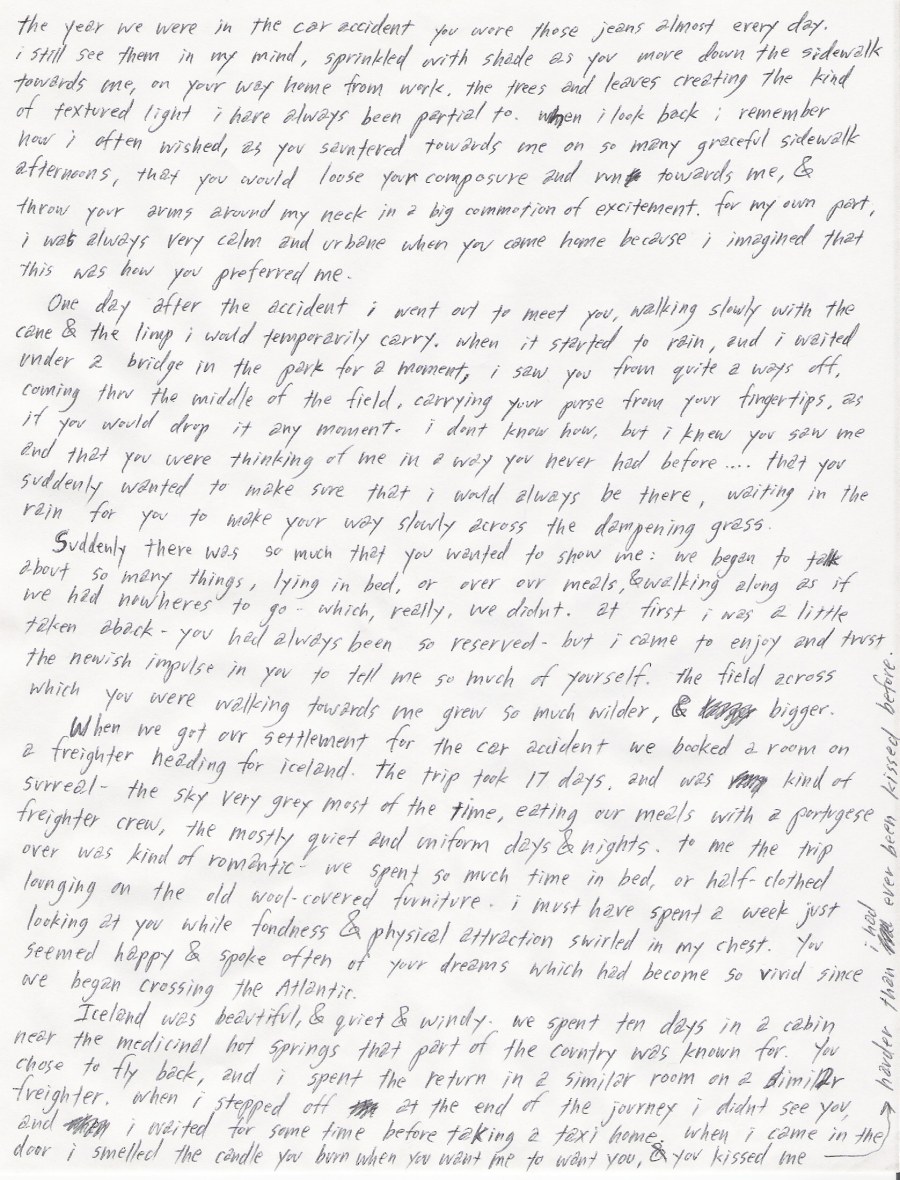 the year we were in the car accident you wore those jeans almost every day.
i still see them in my mind, sprinkled with shade as you move down the sidewalk
towards me, on your way home from work. the trees and leaves creating the kind
of textured light i have always been partial to. when i look back i remember
how i often wished, as you sauntered towards me on so many graceful sidewalk
afternoons, that you would loose your composure and run towards me, &
throw your arms around my neck in a big commotion of excitement. for my own part,
i was always very calm and urbane when you came home because i imagined that
this was how you preferred me.
One day after the accident i went out to meet you, walking slowly with the
cane & the limp i would temporarily carry. when it started to rain, and i waited
under a bridge in the park for a moment, i saw you from quite a ways off,
coming thru the middle of the field, carrying your purse from your fingertips, as
if you would drop it any moment. i dont know how, but i knew you saw me
and that you were thinking of me in a way you never had before .... that you
suddenly wanted to make sure that i would always be there, waiting in the
rain for you to make your way slowly across the dampening grass.
Suddenly there was so much that you wanted to show me: we began to talk
about so many things, lying in bed, or over our meals, & walking along as if
we had nowheres to go - which, really, we didnt. at first i was a little
taken aback - you had always been so reserved - but i came to enjoy and trust
the newish impulse in you to tell me so much of yourself. the field across
which you were walking towards me grew so much wilder, & bigger.
When we got our settlement for the car accident we booked a room on
a freighter heading for iceland. The trip took 17 days, and was kind of
surreal - the sky very grey most of the time, eating our meals with a portugese
freighter crew, the mostly quiet and uniform days & nights. to me the trip
over was kind of romantic - we spent so much time in bed, or half-clothed
lounging on the old wool-covered furniture. i must have spent a week just
looking at you while fondness & physical attraction swirled in my chest. You
seemed happy & spoke often of your dreams which had become so vivid since
we began crossing the Atlantic.
Iceland was beautiful, & quiet & windy. we spent ten days in a cabin
near the medicinal hot springs that part of the country was known for. You
chose to fly back, and i spent the return in a similar room on a similar
freighter. when i stepped off at the end of the journey i didnt see you,
and i waited for some time before taking a taxi home. when i came in the
door i smelled the candle you burn when you want me to want you, & you kissed me
harder than i had ever been kissed before.